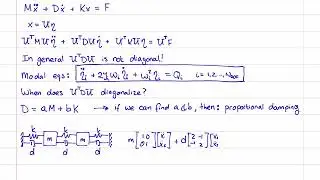 Mẍ + Dẋ + Kx = F
x = Uη
UᵀMUη̈ + UᵀDUη̇ + UᵀKUη = UᵀF
In general UᵀDU is not diagonal!
Modal eqs: η̈ᵢ + 2ζᵢωᵢη̇ᵢ + ωᵢ²ηᵢ = Qᵢ i=1,2...,
When does UᵀDU diagonalize?
D = aM + bK → if we can find a&b, then: proportional damping
k k k
m m
d d d
m[1 0 0 1][ẍ₁ ẍ₂] + d[2 -1 -1 2][ẋ₁ ẋ₂]